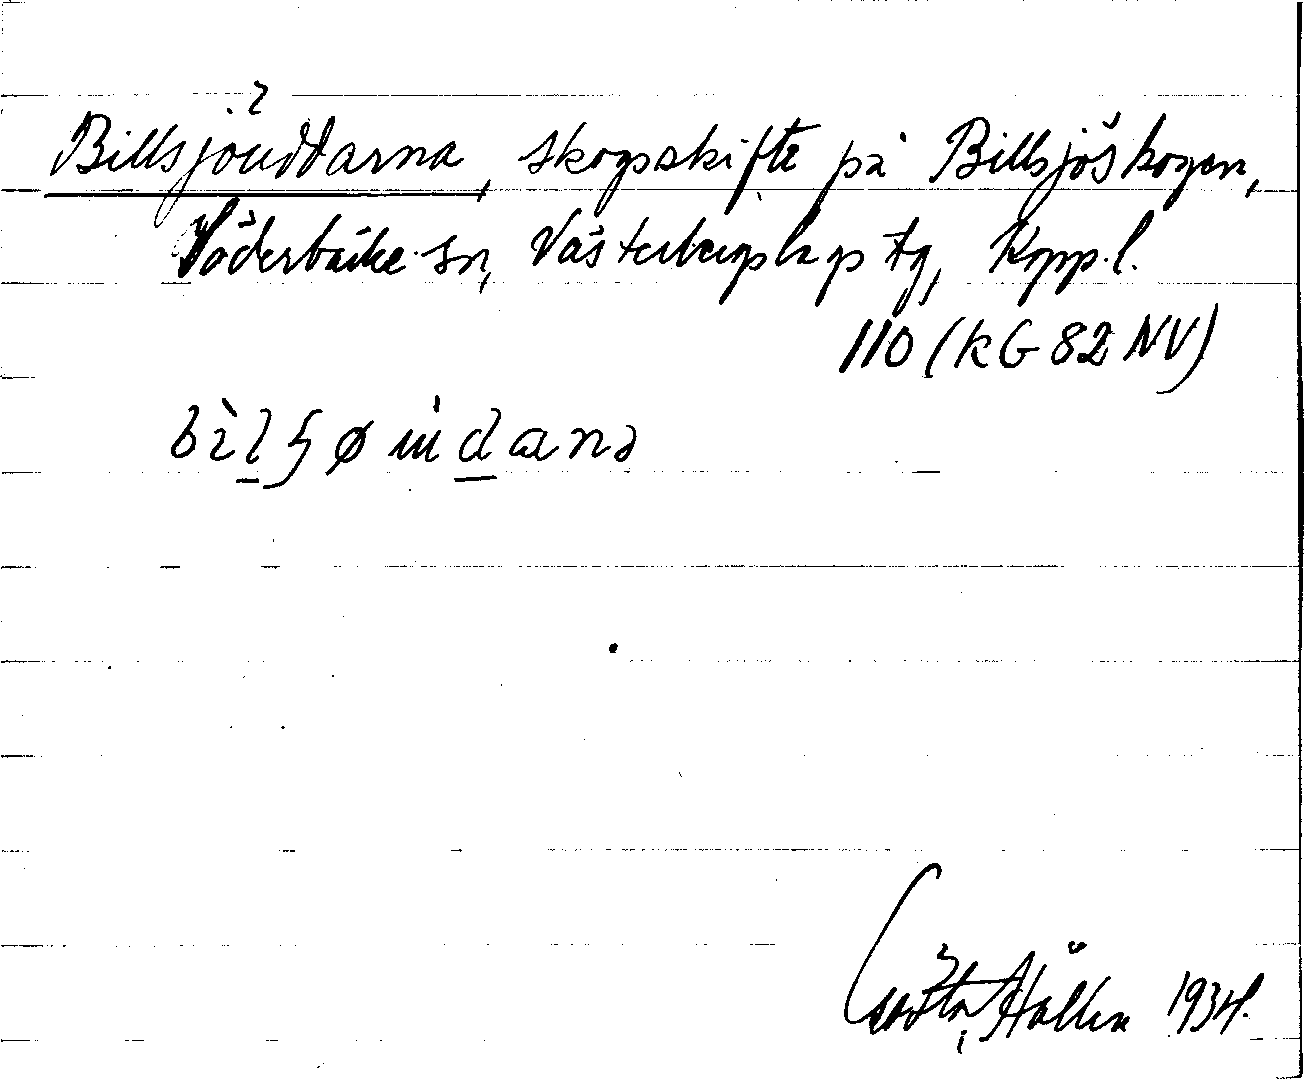 Billsjöuddarna, skogsskifte på Billsjöskogen,
Söderbärke sn, Västerbergslags tg, Kopp. l.
110 (KG 82 NV)
Gösta Hallén 1934.